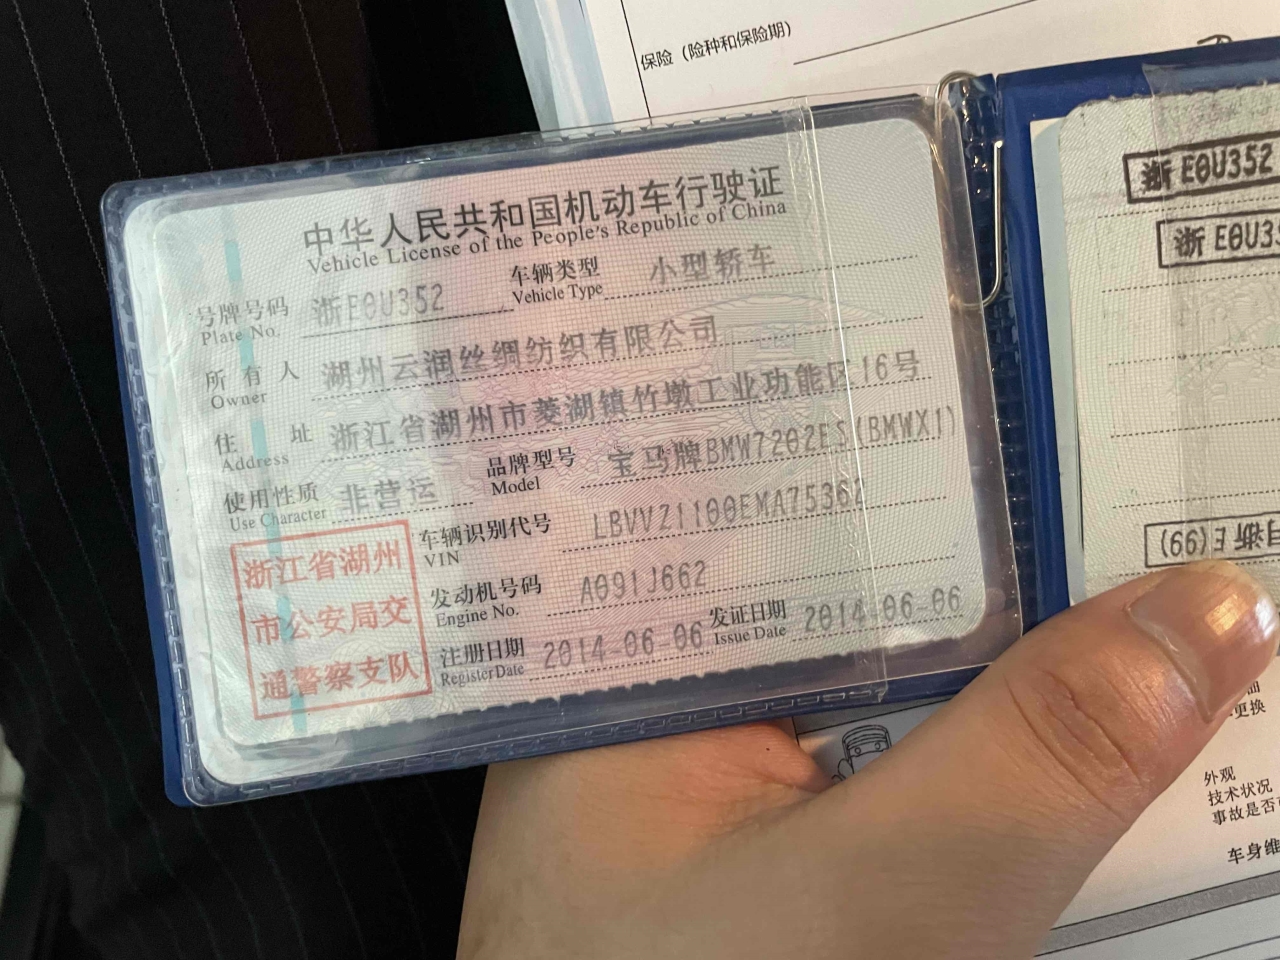 保险（险种和保险期）
中华人民共和国机动车行驶证
Vehicle License of the People's Republic of China
号牌号码 浙E0U352 车辆类型 小型轿车
Plate No. Vehicle Type
所有人 湖州云润丝绸纺织有限公司
Owner
住址 浙江省湖州市菱湖镇竹墩工业功能区16号
Address
使用性质 非营运 品牌型号 宝马牌BMW7202ES(BMWX1)
Use Character Model
车辆识别代号 LBVVZ1100EMA75362
VIN
发动机号码 A091J662
Engine No.
注册日期 2014-06-06 发证日期 2014-06-06
Register Date Issue Date
浙江省湖州
市公安局交
通警察支队
浙E0U352
浙E0U35
更换
外观
技术状况
事故是否
车身维